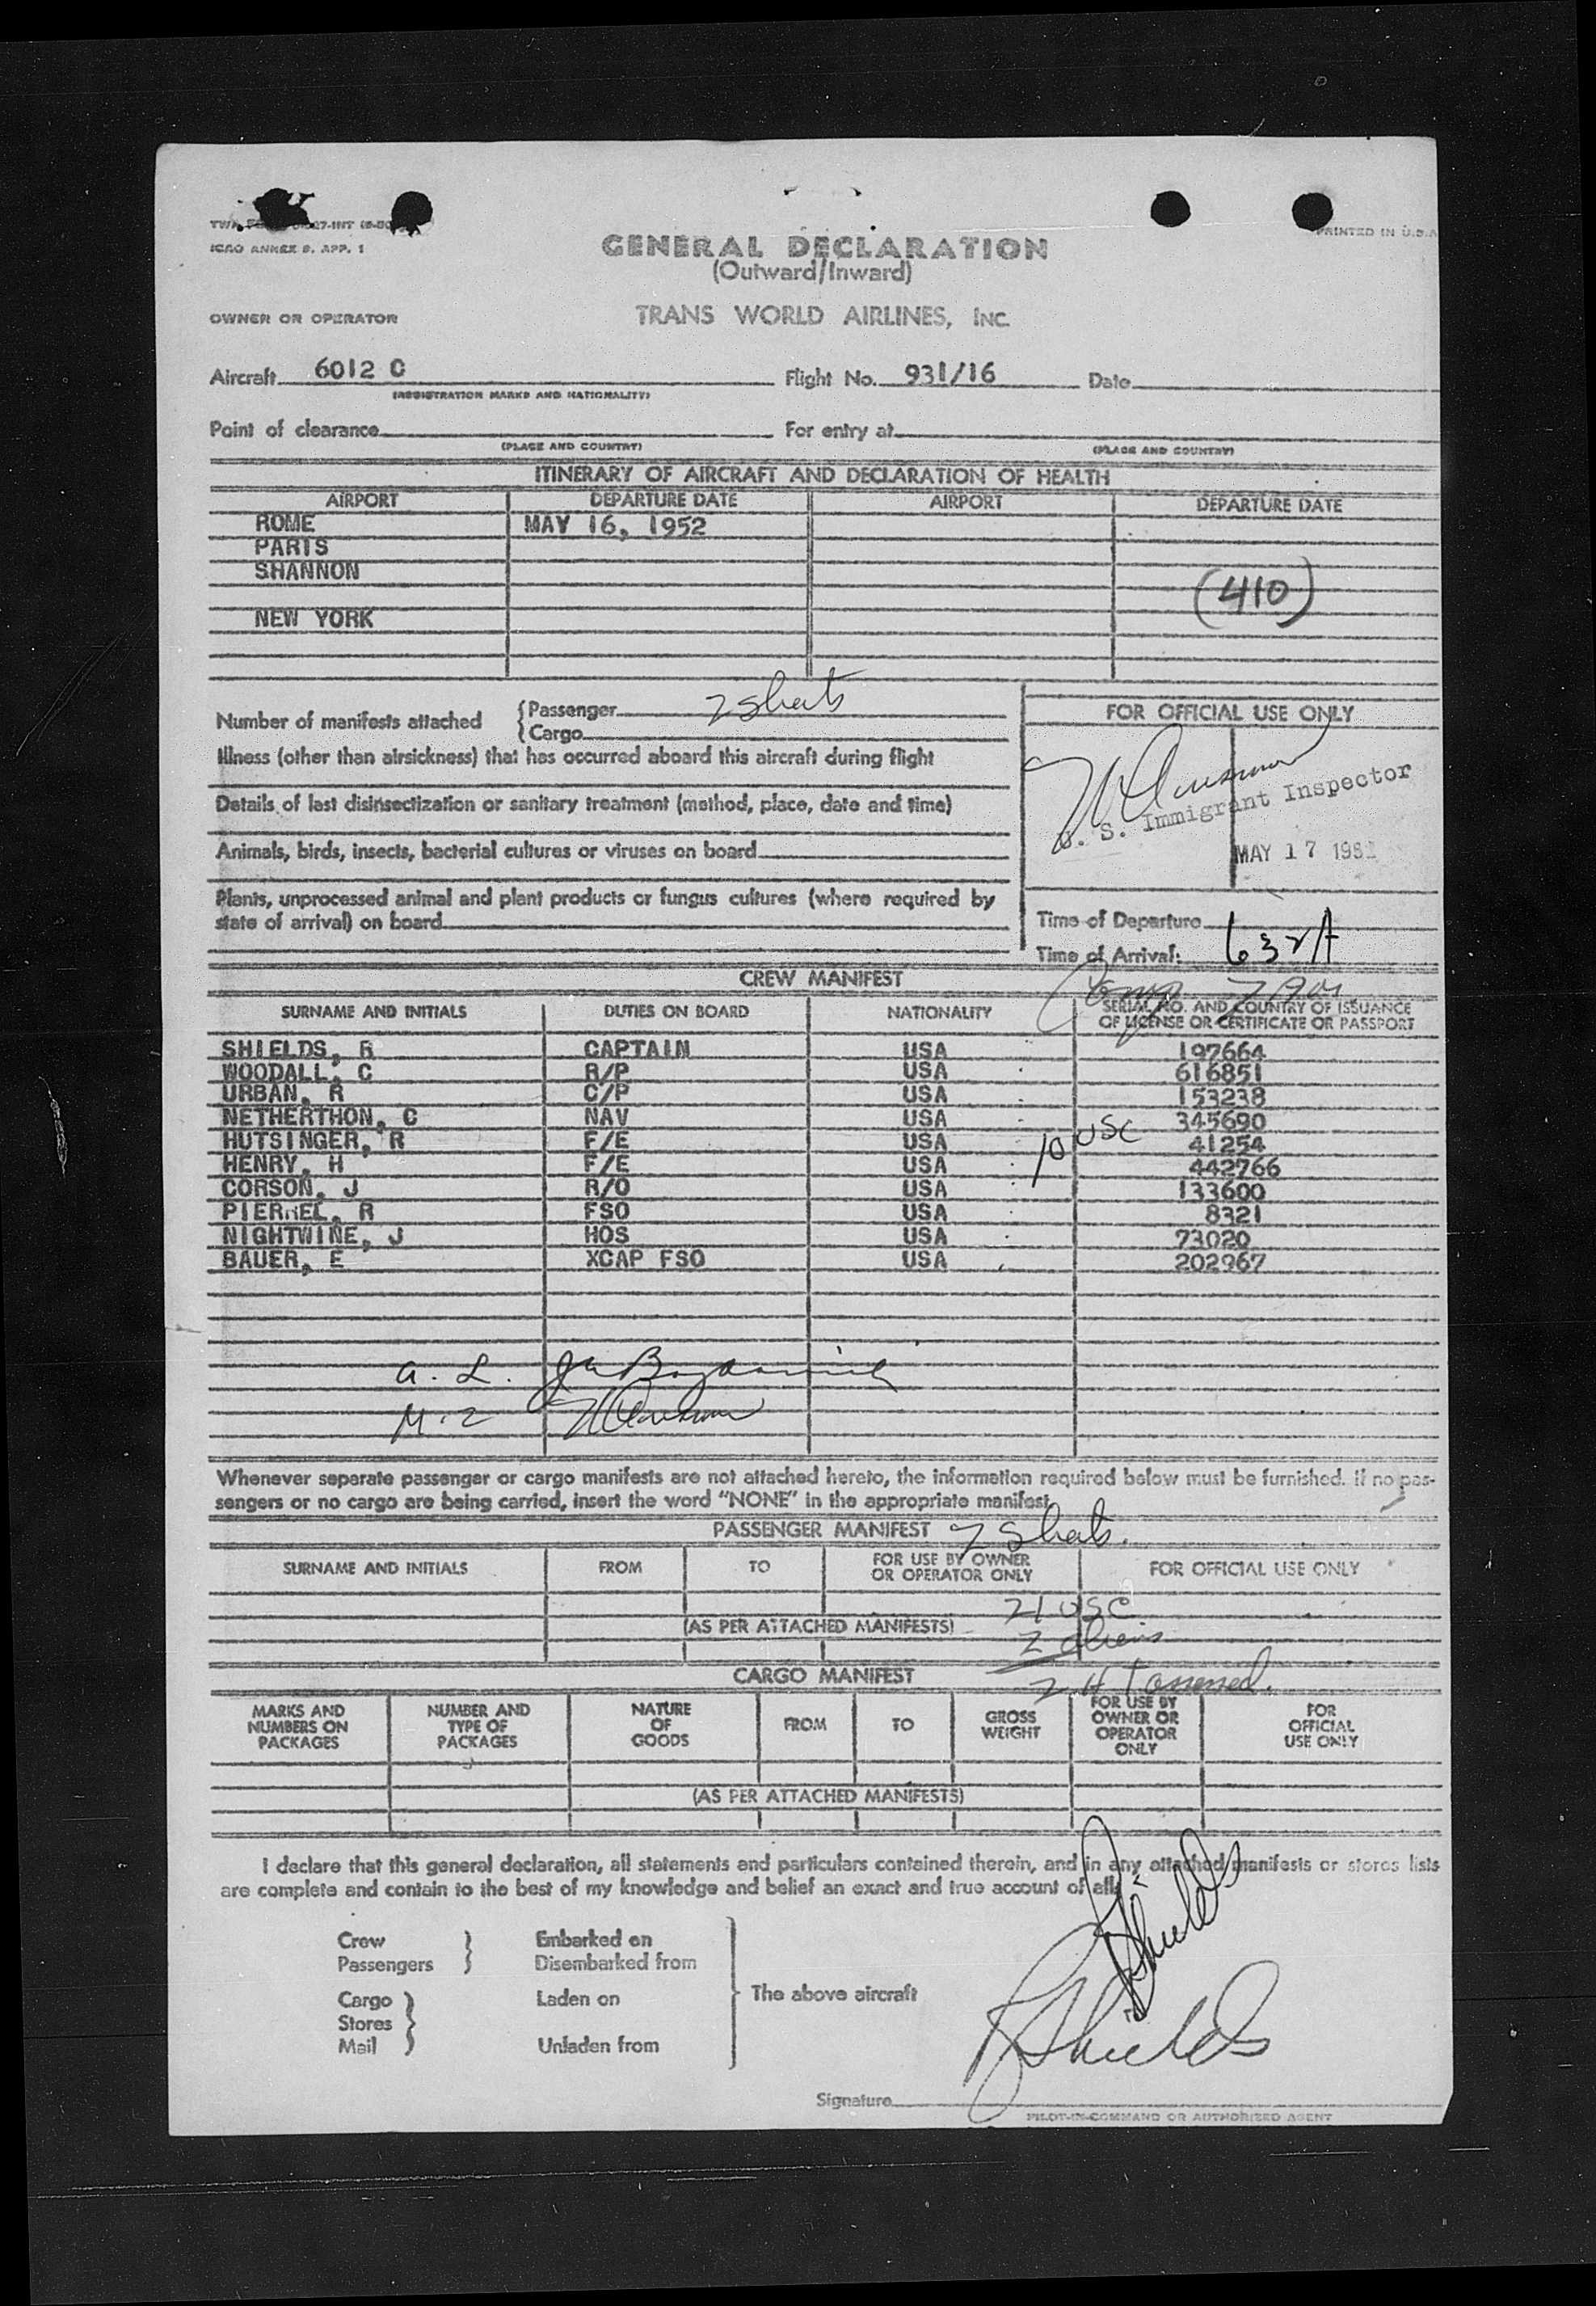 ICAO ANNEX 9, APP. 1
PRINTED IN U.S.A.
GENERAL DECLARATION
(Outward/Inward)
OWNER OR OPERATOR TRANS WORLD AIRLINES, INC.
Aircraft 6012 C Flight No. 931/16 Date
(REGISTRATION MARKS AND NATIONALITY)
Point of clearance For entry at
(PLACE AND COUNTRY) (PLACE AND COUNTRY)
ITINERARY OF AIRCRAFT AND DECLARATION OF HEALTH
AIRPORT DEPARTURE DATE AIRPORT DEPARTURE DATE
ROME MAY 16, 1952
PARIS
SHANNON
(410)
NEW YORK
Number of manifests attached { Passenger 2 sheets
{ Cargo
FOR OFFICIAL USE ONLY
Illness (other than airsickness) that has occurred aboard this aircraft during flight
Details of last disinsectization or sanitary treatment (method, place, date and time)
U. S. Immigrant Inspector
Animals, birds, insects, bacterial cultures or viruses on board
MAY 17 195
Plants, unprocessed animal and plant products or fungus cultures (where required by
state of arrival) on board
Time of Departure
Time of Arrival: 632A
CREW MANIFEST
Comp
SURNAME AND INITIALS DUTIES ON BOARD NATIONALITY SERIAL NO. AND COUNTRY OF ISSUANCE
OF LICENSE OR CERTIFICATE OR PASSPORT
SHIELDS, R CAPTAIN USA 197664
WOODALL, C R/P USA 616851
URBAN, R C/P USA 153238
NETHERTHON, C NAV USA 345690
HUTSINGER, R F/E USA 10 USC 41254
HENRY, H F/E USA 442766
CORSON, J R/O USA 133600
PIERREL, R FSO USA 8321
NIGHTWINE, J HOS USA 73020
BAUER, E XCAP FSO USA 202967
a. L.
M. 2
Whenever separate passenger or cargo manifests are not attached hereto, the information required below must be furnished. If no pas-
sengers or no cargo are being carried, insert the word "NONE" in the appropriate manifest.
PASSENGER MANIFEST 2 Sheets.
SURNAME AND INITIALS FROM TO FOR USE BY OWNER
OR OPERATOR ONLY FOR OFFICIAL USE ONLY
21 USC
(AS PER ATTACHED MANIFESTS)
2 aliens
CARGO MANIFEST
2 HT assessed.
MARKS AND
NUMBERS ON
PACKAGES
NUMBER AND
TYPE OF
PACKAGES
NATURE
OF
GOODS
FROM
TO
GROSS
WEIGHT
FOR USE BY
OWNER OR
OPERATOR
ONLY
FOR
OFFICIAL
USE ONLY
(AS PER ATTACHED MANIFESTS)
I declare that this general declaration, all statements and particulars contained therein, and in any attached manifests or stores lists
are complete and contain to the best of my knowledge and belief an exact and true account of all
Crew } Embarked on
Passengers } Disembarked from
Cargo } Laden on
Stores
Mail } Unladen from
The above aircraft
R Shields
R Shields
Signature
PILOT-IN-COMMAND OR AUTHORIZED AGENT